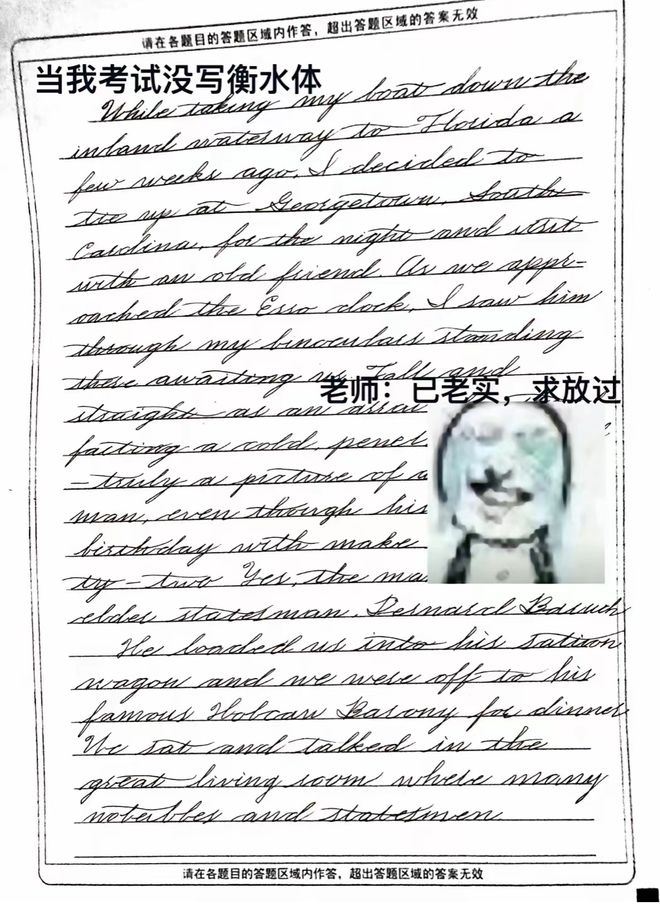 请在各题目的答题区域内作答，超出答题区域的答案无效
当我考试没写衡水体
While taking my boat down the
inland waterway to Florida a
few weeks ago, I decided to
tie up at Georgetown, South
Carolina, for the night and visit
with an old friend. As we appr-
oached the Esso dock, I saw him
through my binoculars standing
there awaiting us. Tall and
老师：已老实，求放过
straight as an arrow
facting a cold, penet
-truly a picture of a
man, even though his
birthday with make
ty-two Yes, the ma
elder statesman, Bernard Baruch
He loaded us into his sation
wagon and we were off to his
famous Hobcaw Barony for dinner
We sat and talked in the
great living room where many
notables and statesmen
请在各题目的答题区域内作答，超出答题区域的答案无效